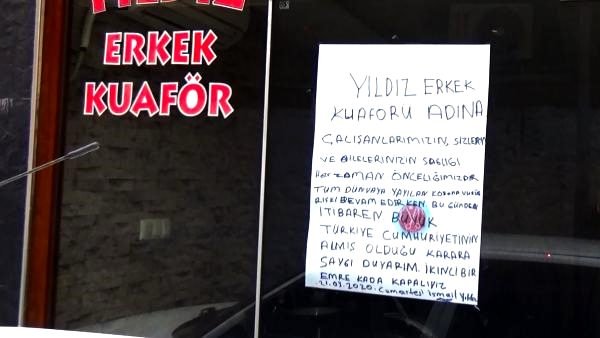 YILDIZ
ERKEK
KUAFÖR
YILDIZ ERKEK
KUAFORU ADINA
ÇALIŞANLARIMIZIN, SİZLERİN
VE AİLELERİNİZİN SAGLIGI
HER ZAMAN ÖNCELİĞİMİZDİR
TUM DUNYAYA YAYILAN KORONA VURİS
RİSKİ DEVAM EDERKEN BU GÜNDEN
İTİBAREN BUYUK
TÜRKİYE CUMHURİYETİNİN
ALMIŞ OLDUĞU KARARA
SAYGI DUYARIM. İKİNCİ BİR
EMRE KADA KAPALIYIZ
21.03.2020. Cumartesi İsmail Yıldız